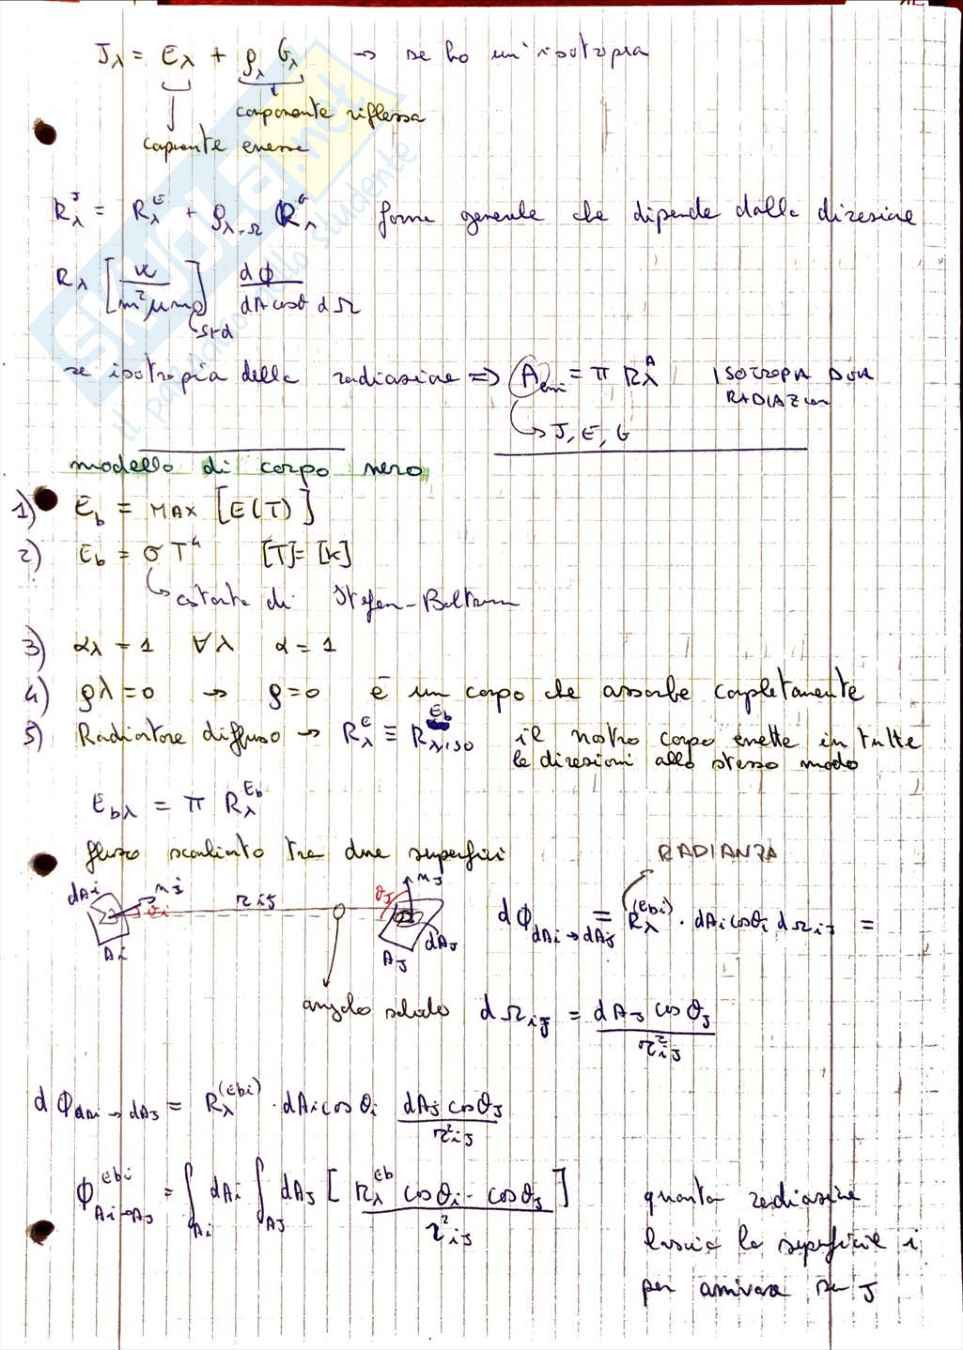 Jλ = Eλ + ρλ Gλ → se ho un'isotropia
componente riflessa
componente emessa
Rλ^J = Rλ^E + ρλ,Ω Rλ^G forma generale che dipende dalla direzione
Rλ [W / m² μm] dϕ / dA cosθ dΩ
srd
se isotropia della radiazione ⇒ A = π Rλ^A ISOTROPIA DELLA
RADIAZION
↳ J, E, G
modello di corpo nero
1) Eb = MAX [E(T)]
2) Eb = σ T⁴ [T] = [K]
↳ costante di Stefan-Boltzmann
3) αλ = 1 ∀λ α = 1
4) ρλ = 0 → ρ = 0 è un corpo che assorbe completamente
5) Radiatore diffuso → Rλ^E ≡ Rλ,iso^Eb il nostro corpo emette in tutte
le direzioni allo stesso modo
Ebλ = π Rλ^Eb
flusso scambiato tra due superfici
RADIANZA
dAi nj θi rij θj nj dAj Ai Aj
dϕ dAi→dAj = Rλ^(Ebi) · dAi cosθi dΩij =
angolo solido dΩij = dAj cosθj / r²ij
dϕ dAi→dAj = Rλ^(Ebi) · dAi cosθi dAj cosθj / r²ij
ϕ^Ebi Ai→Aj = ∫Ai dAi ∫Aj dAj [ Rλ^Eb cosθi · cosθj / r²ij ]
quanta radiazione
lascia la superficie i
per arrivare su J
SKUOLA.net
il paradiso dello studente